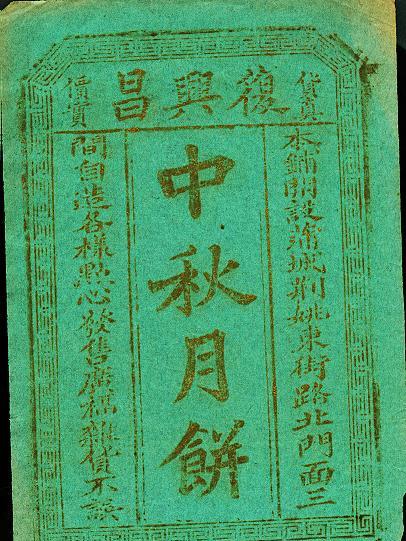 貨真
復興昌
價實
本鋪開設蒲城荆姚東街路北門面三
中秋月餅
間自造各樣點心發售廣福雜貨不誤